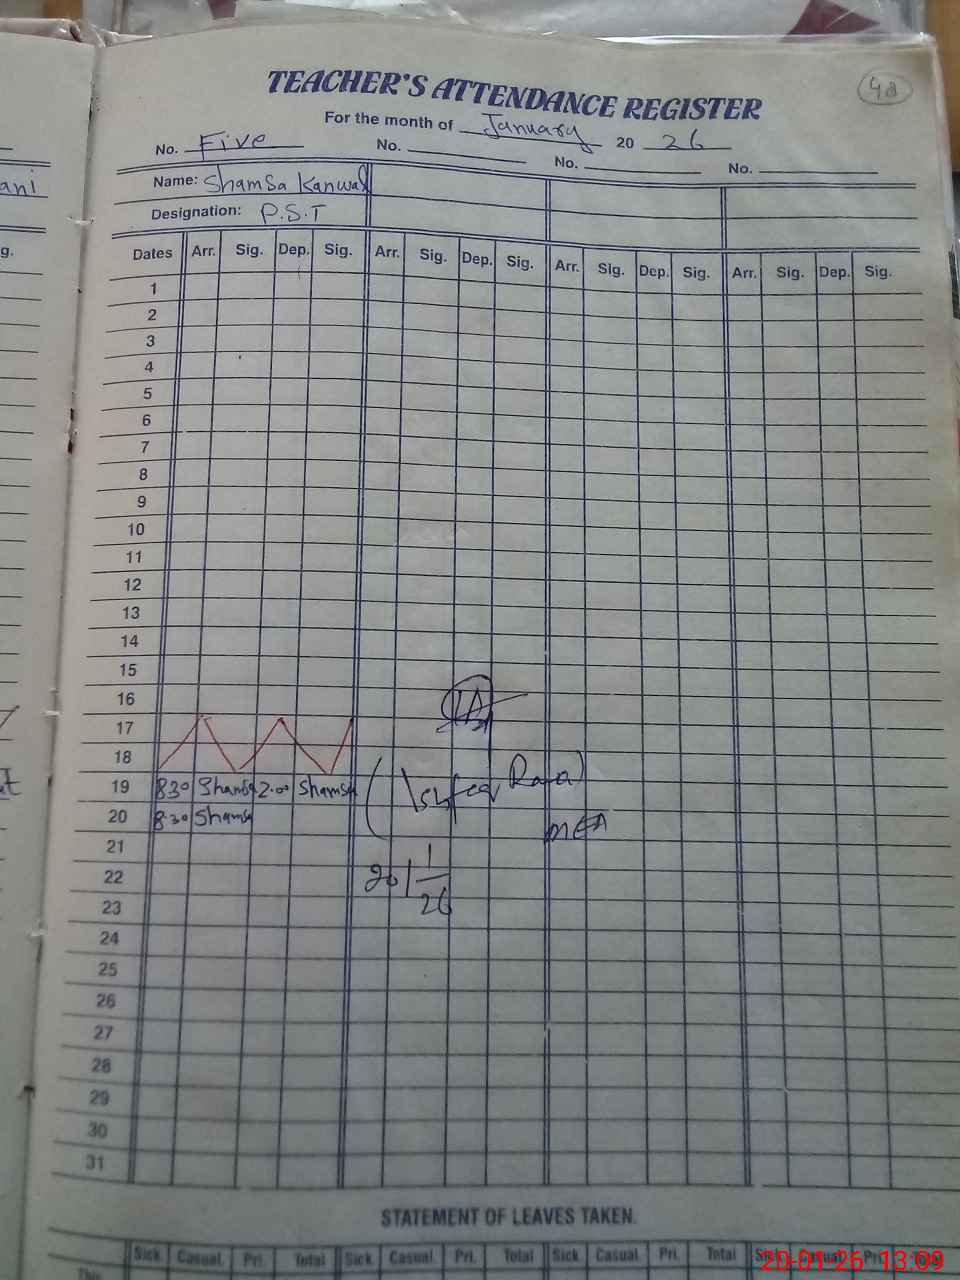 48
TEACHER'S ATTENDANCE REGISTER
For the month of January 20 26
No. Five No. No. No.
ani
Name: Shamsa Kanwal
Designation: P.S.T
g.
Dates Arr. Sig. Dep. Sig. Arr. Sig. Dep. Sig. Arr. Sig. Dep. Sig. Arr. Sig. Dep. Sig.
1
2
3
4
5
6
7
8
9
10
11
12
13
14
15
16
17
18
19 8:30 Shamsa 2:00 Shamsa
20 8:30 Shamsa
Raza)
MEA
21
22
20/1/26
23
24
25
26
27
28
29
30
31
STATEMENT OF LEAVES TAKEN.
Sick Casual Pri. Total Sick. Casual Pri. Total Sick Casual Pri. Total Sick Casual Pri.
This
20-01-26 13:09